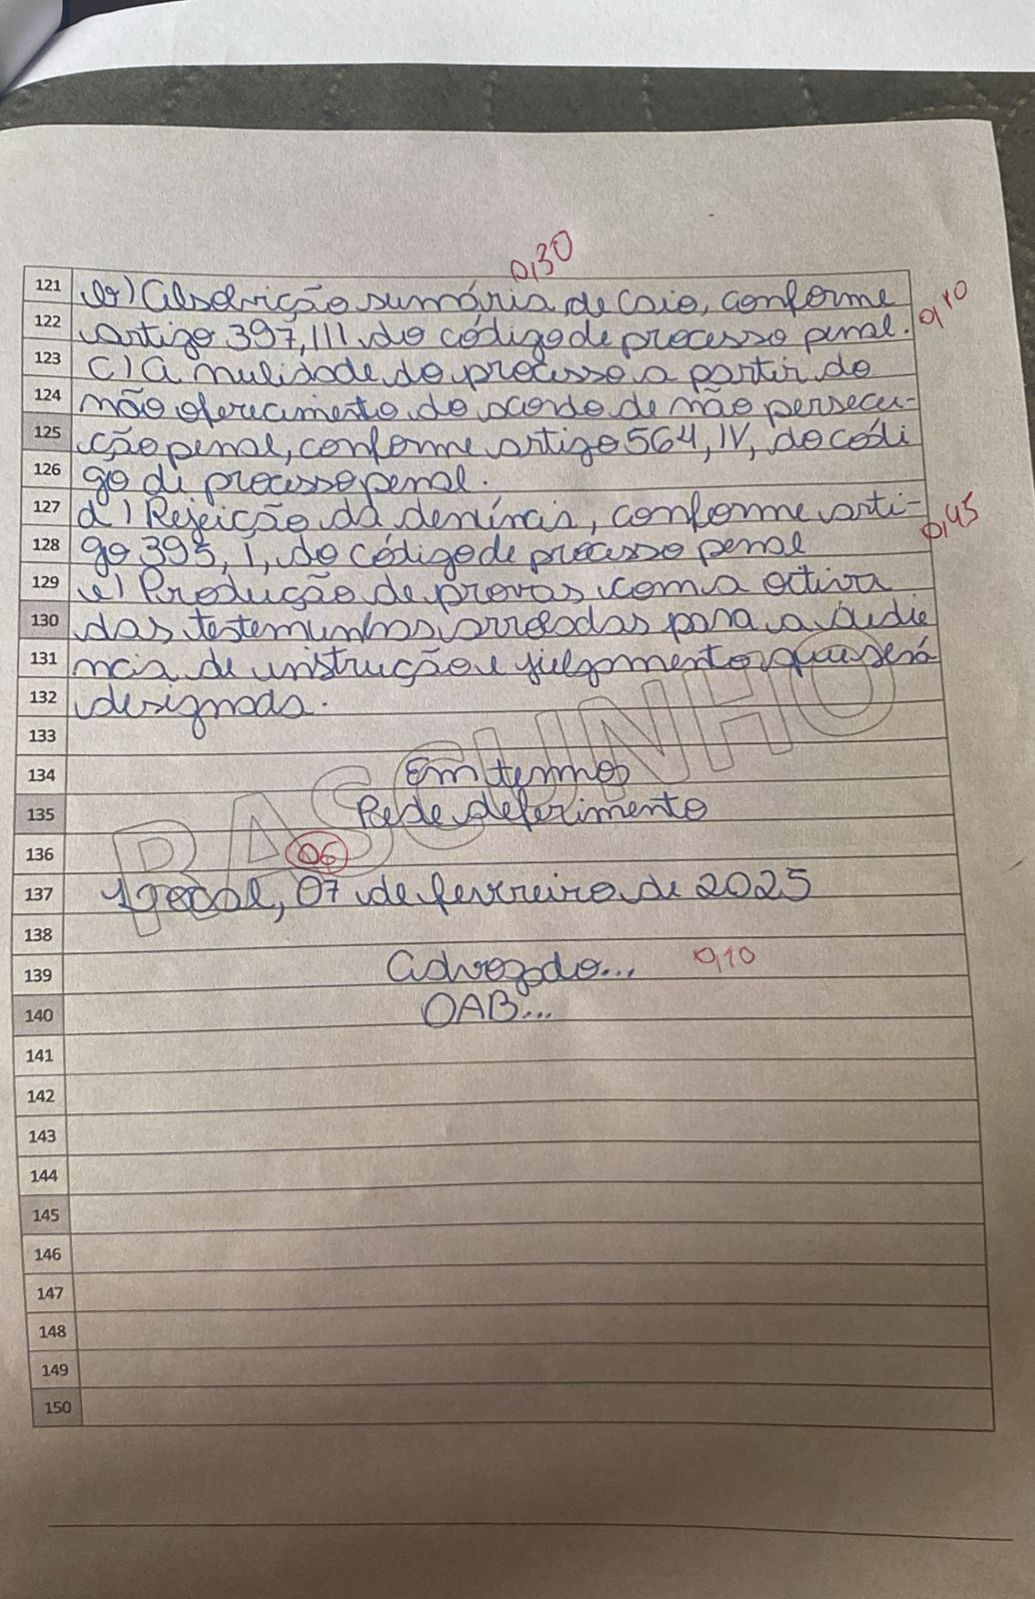 0,30
121 b) Absolvição sumária de Caio, conforme
122 artigo 397, III do código de processo penal. 0,10
123 C) A nulidade do processo a partir do
124 não oferecimento do acordo de não persecu-
125 ção penal, conforme artigo 564, IV, do códi
126 go di processo penal.
127 d) Rejeição da denúncia, conforme arti- 0,45
128 go 395, I, do código de processo penal
129 e) Produção de provas com a octiva
130 das testemunhas arroladas para a audie
131 ncia de instrução e julgamento que será
132 designada.
133
134 Em termos
135 Pede deferimento
RASCUNHO
136 06
137 Local, 07 de fevereiro de 2025
138
139 Advogado... 0,10
140 OAB...
141
142
143
144
145
146
147
148
149
150